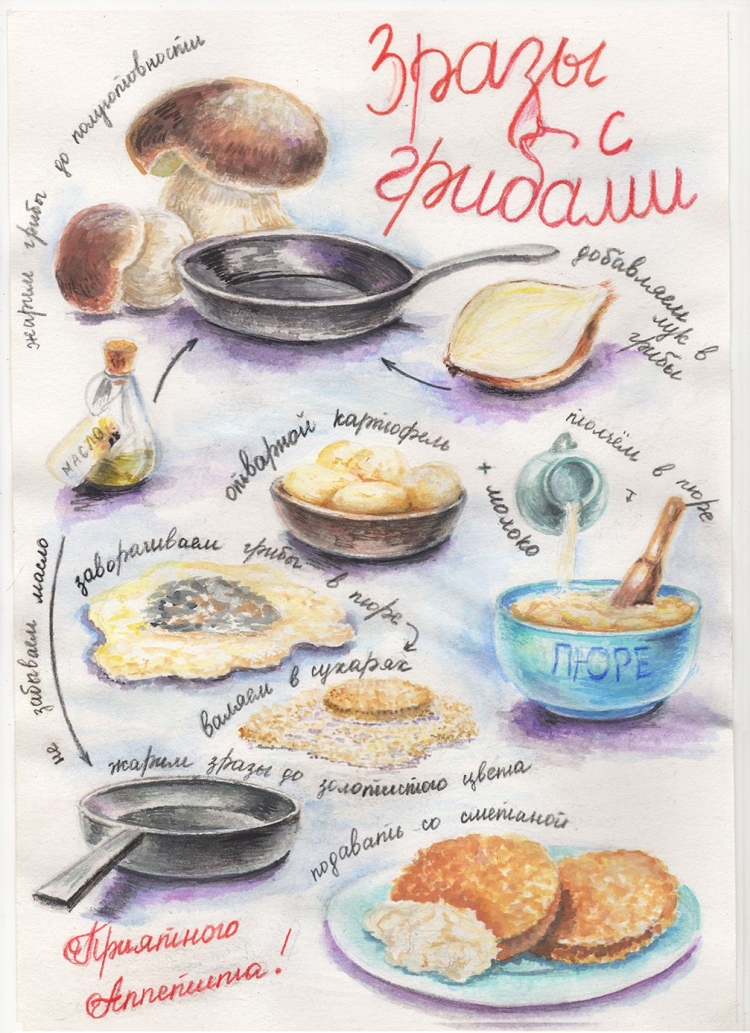 Зразы
с
грибами
жарим грибы до полуготовности
добавляем
лук в
грибы
МАСЛО
отварной картофель
+ молоко
толчём в пюре
ПЮРЕ
заворачиваем грибы в пюре
валяем в сухарях
не забываем масло
жарим зразы до золотистого цвета
подавать со сметаной
Приятного
Аппетита!